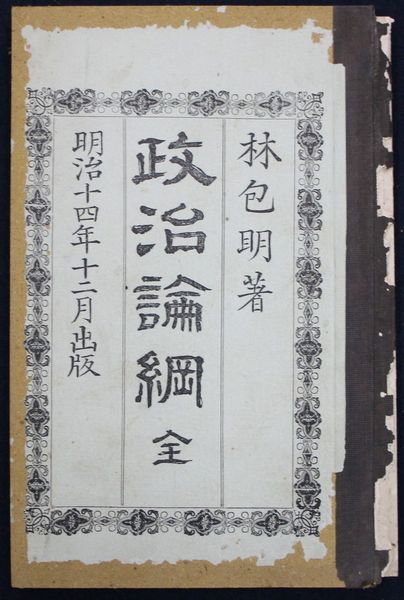 林包明著
政治論綱 全
明治十四年十二月出版